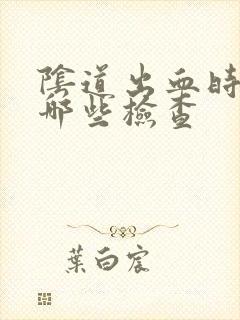 陰道出血時
哪些檢查
葉白宸